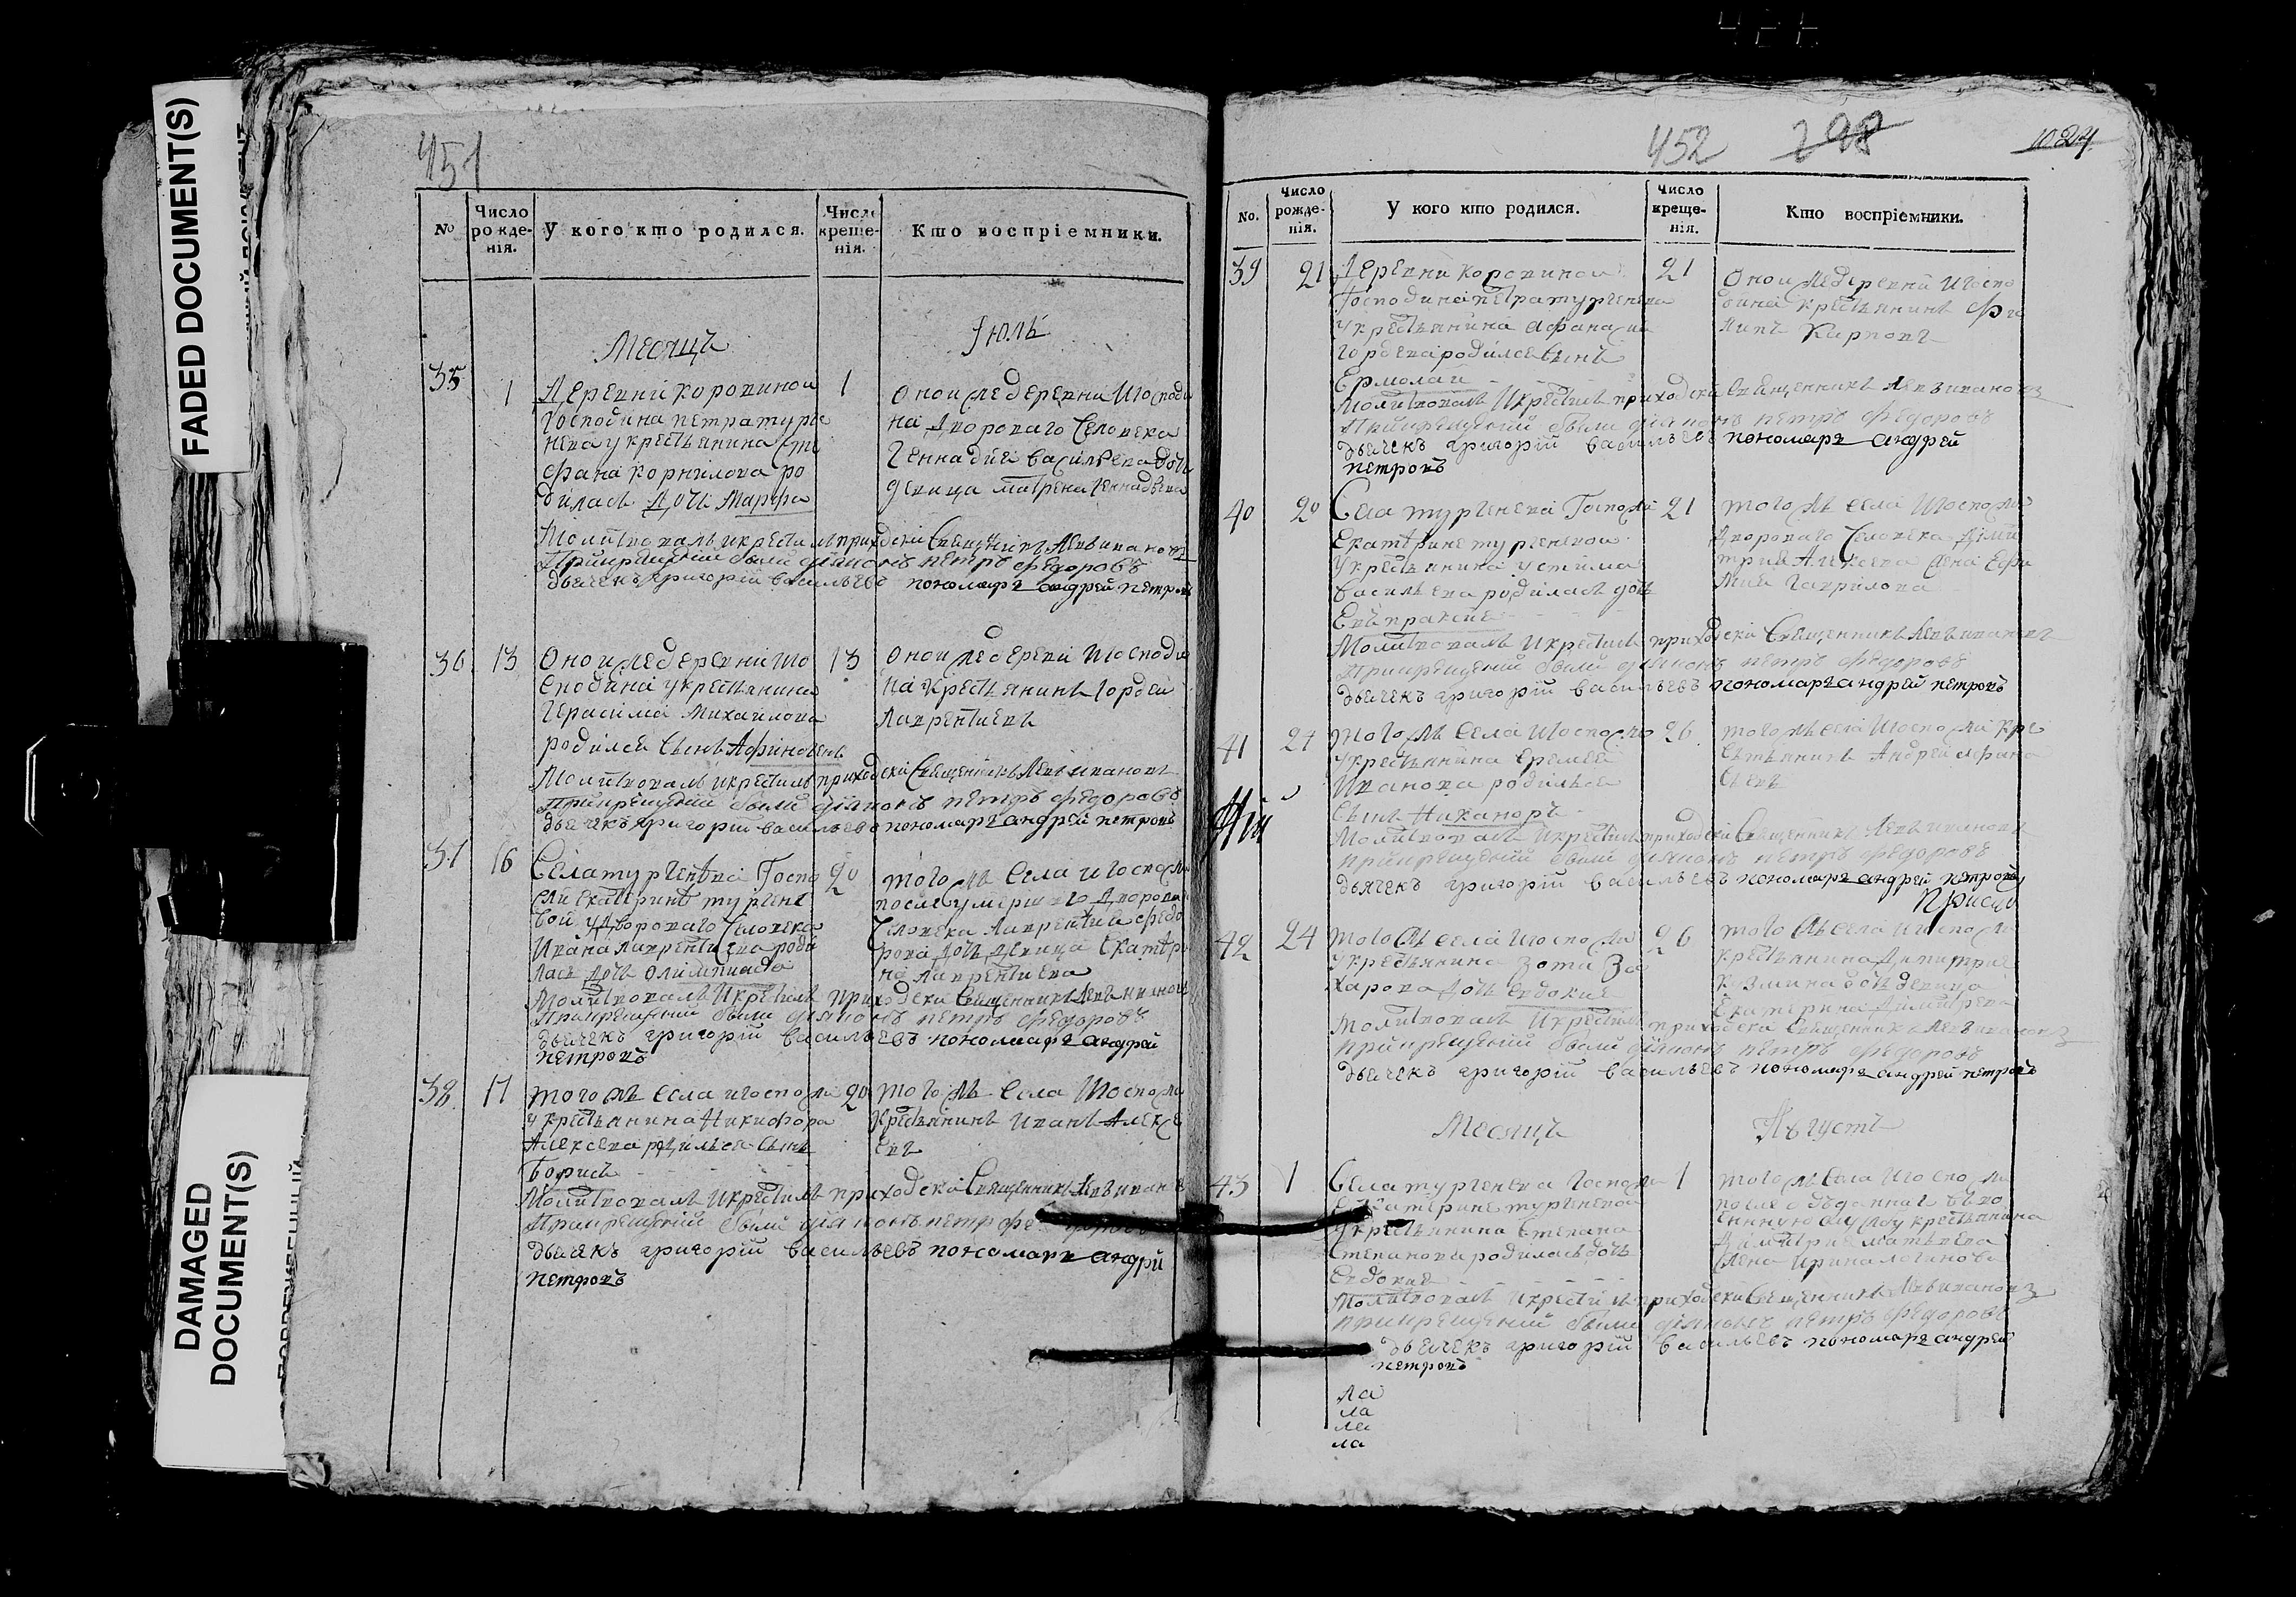 FADED DOCUMENT(S)
DAMAGED
DOCUMENT(S)
451
No
Число
рожде-
нія.
У кого кто родился.
Число
креще-
нія.
Кто воспріемники.
Месяцъ
Іюль
35
1
Деревни Коровиной
Господина петра турге
нева укрестьянина Сте
фана Корнилова ро
дилась Дочь Марфа
1
оной же деревни Игосподи
на Дворового Человека
Геннадиги васильева дочь
девица матрена Геннадьева
Молитвовалъ икрестилъ приходски Священникъ Левъ ивановъ
Прикрещении были діяконъ петръ федоровъ
дьячекъ григорій васильевъ пономарь андрей петровъ
36
13
Оной же деревни иго
сподина укрестьянина
Герасима Михайлова
родился Сынъ Афиногенъ
13
Оной же деревни Игосподи
на Крестьянинъ Гордей
Лаврентиевъ
Молитвовалъ икрестилъ приходски Священникъ Левъ ивановъ
Прикрещении были діяконъ петръ федоровъ
дьячекъ григорій васильевъ пономарь андрей петровъ
37
16
Села тургенева Госпо
жи Екатерине тургене
вой у Дворового Человека
Ивана Лаврентиева роди
лась дочь Олимпиада
20
того жъ села игоспожи
после умершаго Дворова
Человека Лаврентия федо
рова дочь девица Екатери
на Лаврентиева
Молитвовалъ Икрестилъ приходски Священникъ Левъ иванов
Прикрещении были діяконъ петръ федоровъ
дьячекъ григорій васильевъ пономарь андрей
петровъ
38
17
того жъ села игоспожи
укрестьянина Никифора
Алексеева родился Сынъ
Борисъ
20
того жъ села Игоспожи
Крестьянинъ Иванъ Алексе
евъ
Молитвовалъ Икрестилъ приходски Священникъ Левъ иванов
Прикрещении были діяконъ петръ
дьячекъ григорій васильевъ пономарь андрй
петровъ
452
298
1024
No.
Число
рожде-
нія.
У кого кто родился.
Число
креще-
нія.
Кто воспріемники.
39
21
Деревни Коровиной
Господина петра тургенева
укрестьянина Афанасия
Гордева родился Сынъ
Ермолай
21
оной же деревни Игоспо
дина крестьянинъ Фи
липъ Карповъ
Молитвовалъ Икрестилъ приходски Священникъ Левъ ивановъ
Прикрещении были діяконъ петръ федоровъ
дьячекъ григорій васильевъ пономарь андрей
петровъ
40
20
Села тургенева Госпожи
Екатерине тургеневой
укрестьянина устима
васильева родилась дочь
Евпраксия
21
того жъ села Игоспожи
Дворового Человека Дми
трия Алексева жена Ефи
мия Гаврилова
Молитвовалъ Икрестилъ приходски Священникъ Левъ ивановъ
Прикрещении были діяконъ петръ федоровъ
дьячекъ григорій васильевъ пономарь андрей петровъ
41
24
того жъ Села Игоспожи
укрестьянина Еремея
Иванова родился
Сынъ Никаноръ
26
того жъ села Игоспожи Кре
стьянинъ Андрей Афана
сьевъ
Молитвовалъ Икрестилъ приходски Священникъ Левъ ивановъ
Прикрещении были діяконъ петръ федоровъ
дьячекъ григорій васильевъ пономарь андрей петровъ
42
24
того жъ села Игоспожи
укрестьянина Зота За
харова дочь евдокия
26
того жъ села Игоспожи
крестьянина Димитрие
Кузмина дочь девица
Екатерина Димитрева
Молитвовалъ Икрестилъ приходски Священникъ Левъ ивановъ
Прикрещении были діяконъ петръ федоровъ
дьячекъ григорій васильевъ пономарь андрей петровъ
Месяцъ
Августъ
43
1
Села тургенева Госпожи
Екатерине тургеневой
укрестьянина Степана
Степанова родилась дочь
Евдокия
1
того жъ села Игоспожи
после отданнаго въ во
енную службу крестьянина
Димитрия матвеева
жена Ирина логинова
Молитвовалъ Икрестилъ приходски Священникъ Левъ ивановъ
Прикрещении были діяконъ петръ федоровъ
дьячекъ григорій васильевъ пономарь андрей
петровъ
ла
ла
ла
ла